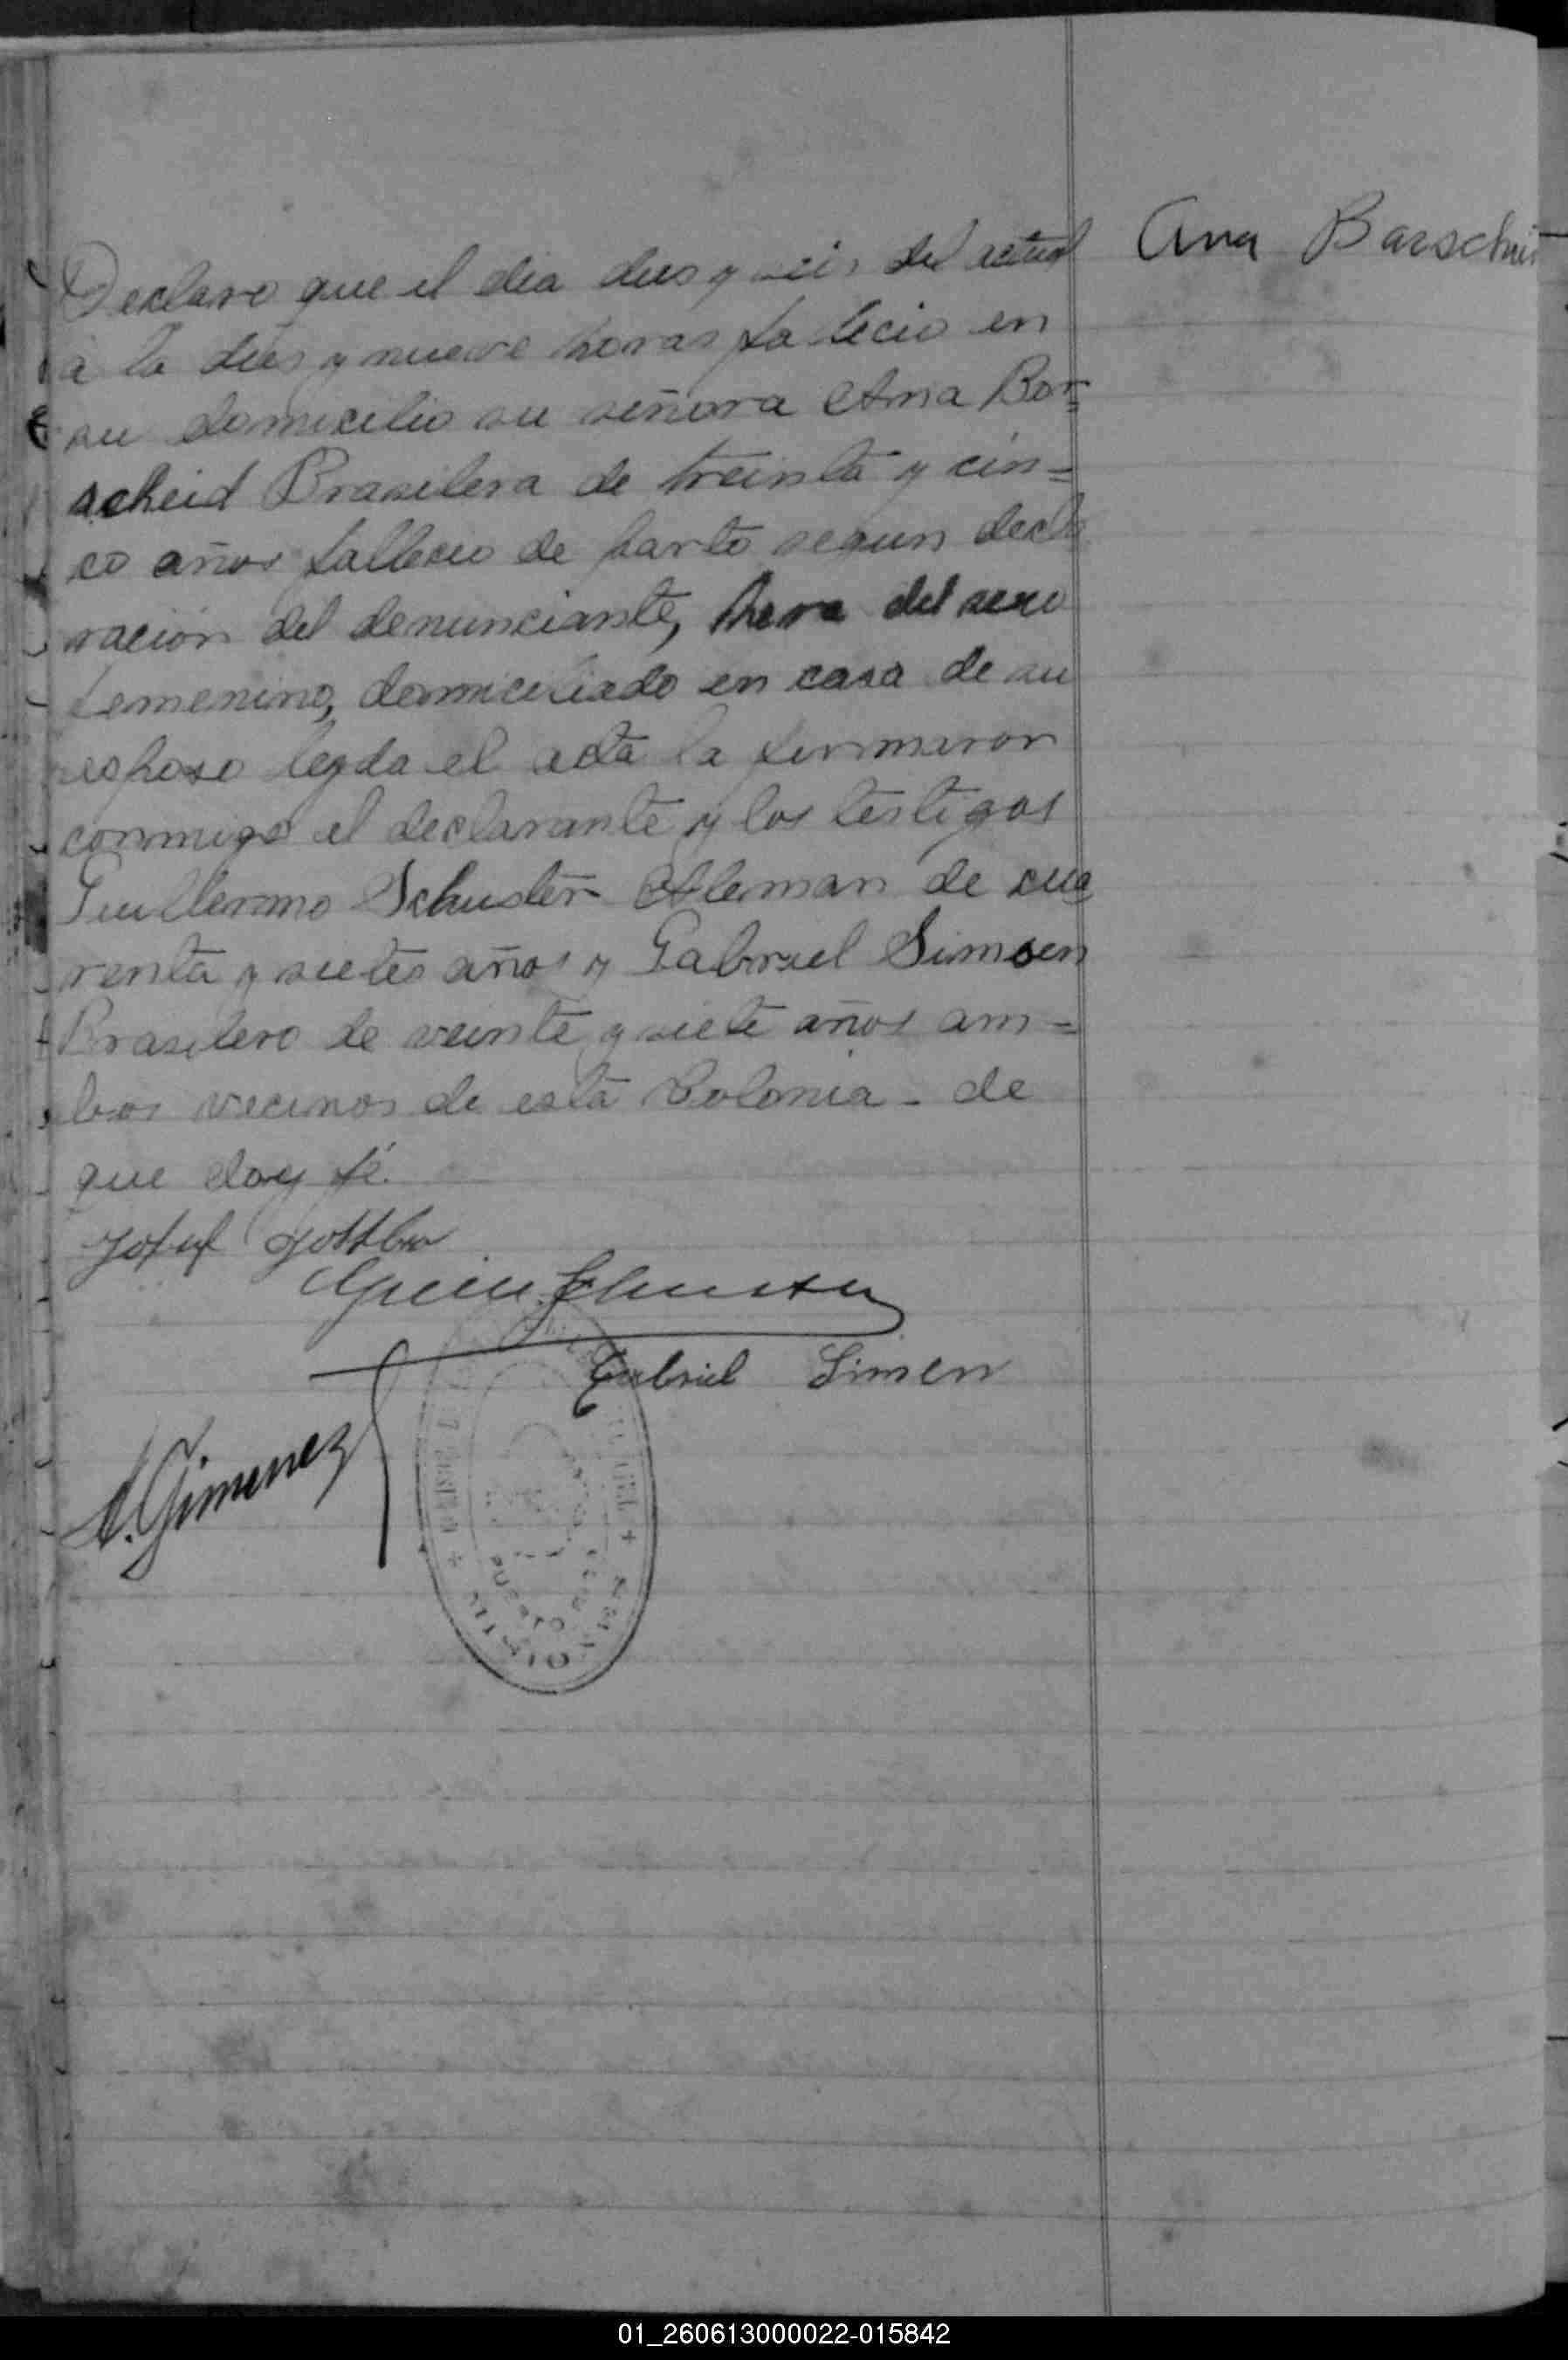 Ana Barschei
Declaro que el dia dies y seis del actual
a la dies y nueve horas falecio en
su domicilio su señora Ana Bor=
scheid Brasilera de treinta y cin=
co años fallecio de parto segun decla
racion del denunciante, hera del sexo
femenino, domiciliado en casa de su
esposo leyda el acta la firmaron
conmigo el declarante y los testigos
Guillermo Schuster Aleman de cua
renta y sietes años y Gabriel Simoen
Brasilero de veinte y siete años am=
bos vecinos de esta Colonia - de
que doy fé.
Josef
Guill. Schuster
Gabriel Simen
A. Gimenez
PUERTO
CIVIL
01_260613000022-015842